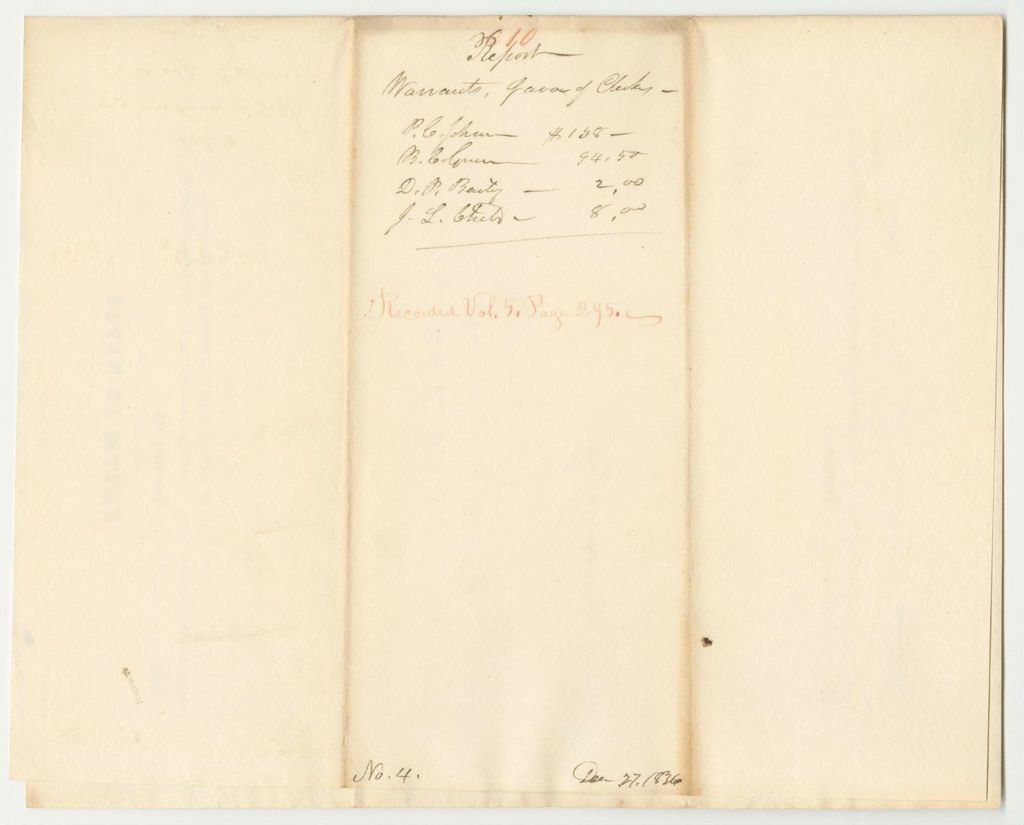 10
Report
Warrants, favor of Clerks —
P. C. Johnson — $138 —
B. C. Green — 94.50
D. P. Baily — 2,00
J. L. Child — 8,00
Recorded Vol. 5. Page 295.
No. 4.
Dec 27. 1836